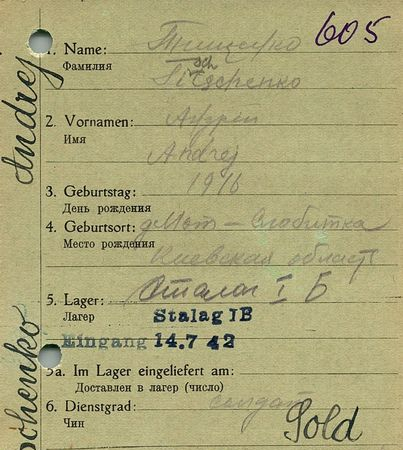 605
1. Name: Тищенко
Фамилия Tischenko
2. Vornamen: Андрей
Имя Andrej
3. Geburtstag: 1916
День рождения
4. Geburtsort:
Место рождения Киевская област
5. Lager: Сталаг I Б
Лагер Stalag IB
Eingang 14.7.42
5a. Im Lager eingeliefert am:
Доставлен в лагер (число)
6. Dienstgrad: солдат
Чин Sold
Andrej